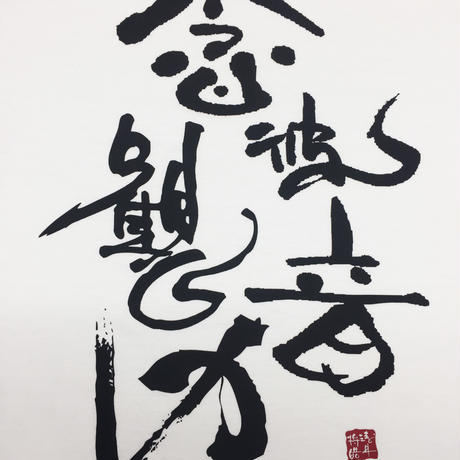 念彼観音力